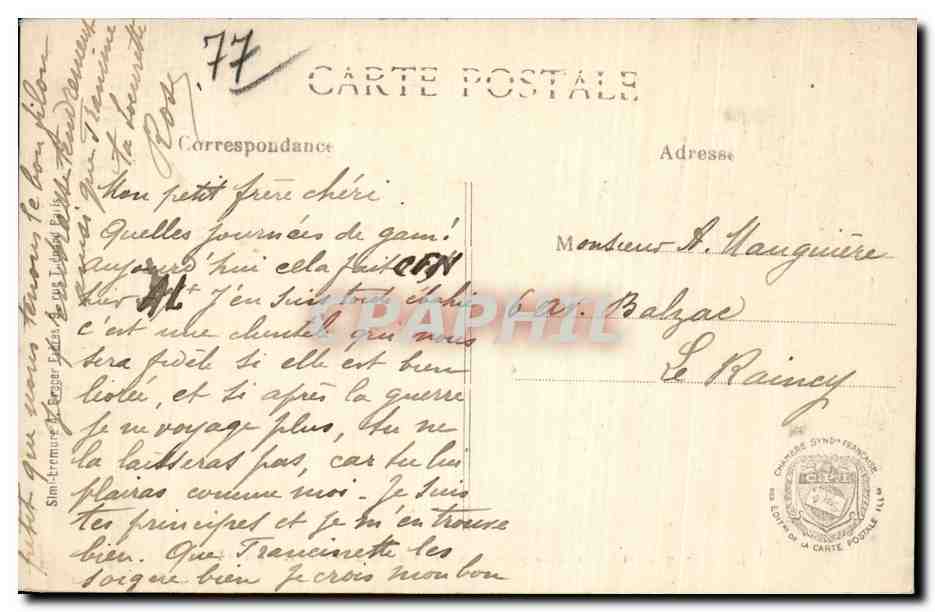 77
CARTE POSTALE
Correspondance
Adresse
Mon petit frère chéri
Quelles journées de gam!
aujourd'hui cela fait CFN
hier AL J'en suis toute
c'est une clientèle qui vous
sera fidèle si elle est bien
et si après la guerre
je ne voyage plus, tu ne
la laisseras pas, car tu lui
plairas comme moi - Je suis
tes principes et je m'en trouve
bien. Que Francinette les
soigne bien je crois mon bon
petit que nous tenons le bon filon
Je tendrement
ainsi que Francine
ta soeurette
Rody
Monsieur A. Mauguière
6 av. Balzac
Le Raincy
Simi-bromure A. Breger Frères 9, rue Thénard Paris
CHAMBRE SYNDle FRANÇAISE
DES EDITrs DE LA CARTE POSTALE ILLée
CPAPHIL